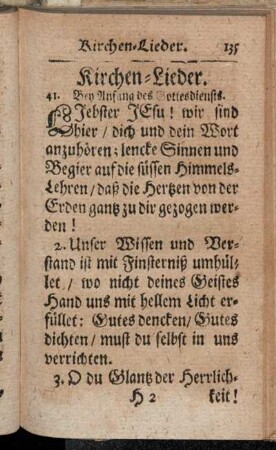 Kirchen-Lieder. 135
Kirchen-Lieder.
41. Bey Anfang des Gottesdiensts.
LJebster JEsu! wir sind
hier / dich und dein Wort
anzuhören: lencke Sinnen und
Begier auf die süssen Himmels-
Lehren / daß die Hertzen von der
Erden gantz zu dir gezogen wer-
den!
2. Unser Wissen und Ver-
stand ist mit Finsterniß umhül-
let / wo nicht deines Geistes
Hand uns mit hellem Licht er-
füllet: Gutes dencken / Gutes
dichten / must du selbst in uns
verrichten.
3. O du Glantz der Herrlich-
H 2 keit!